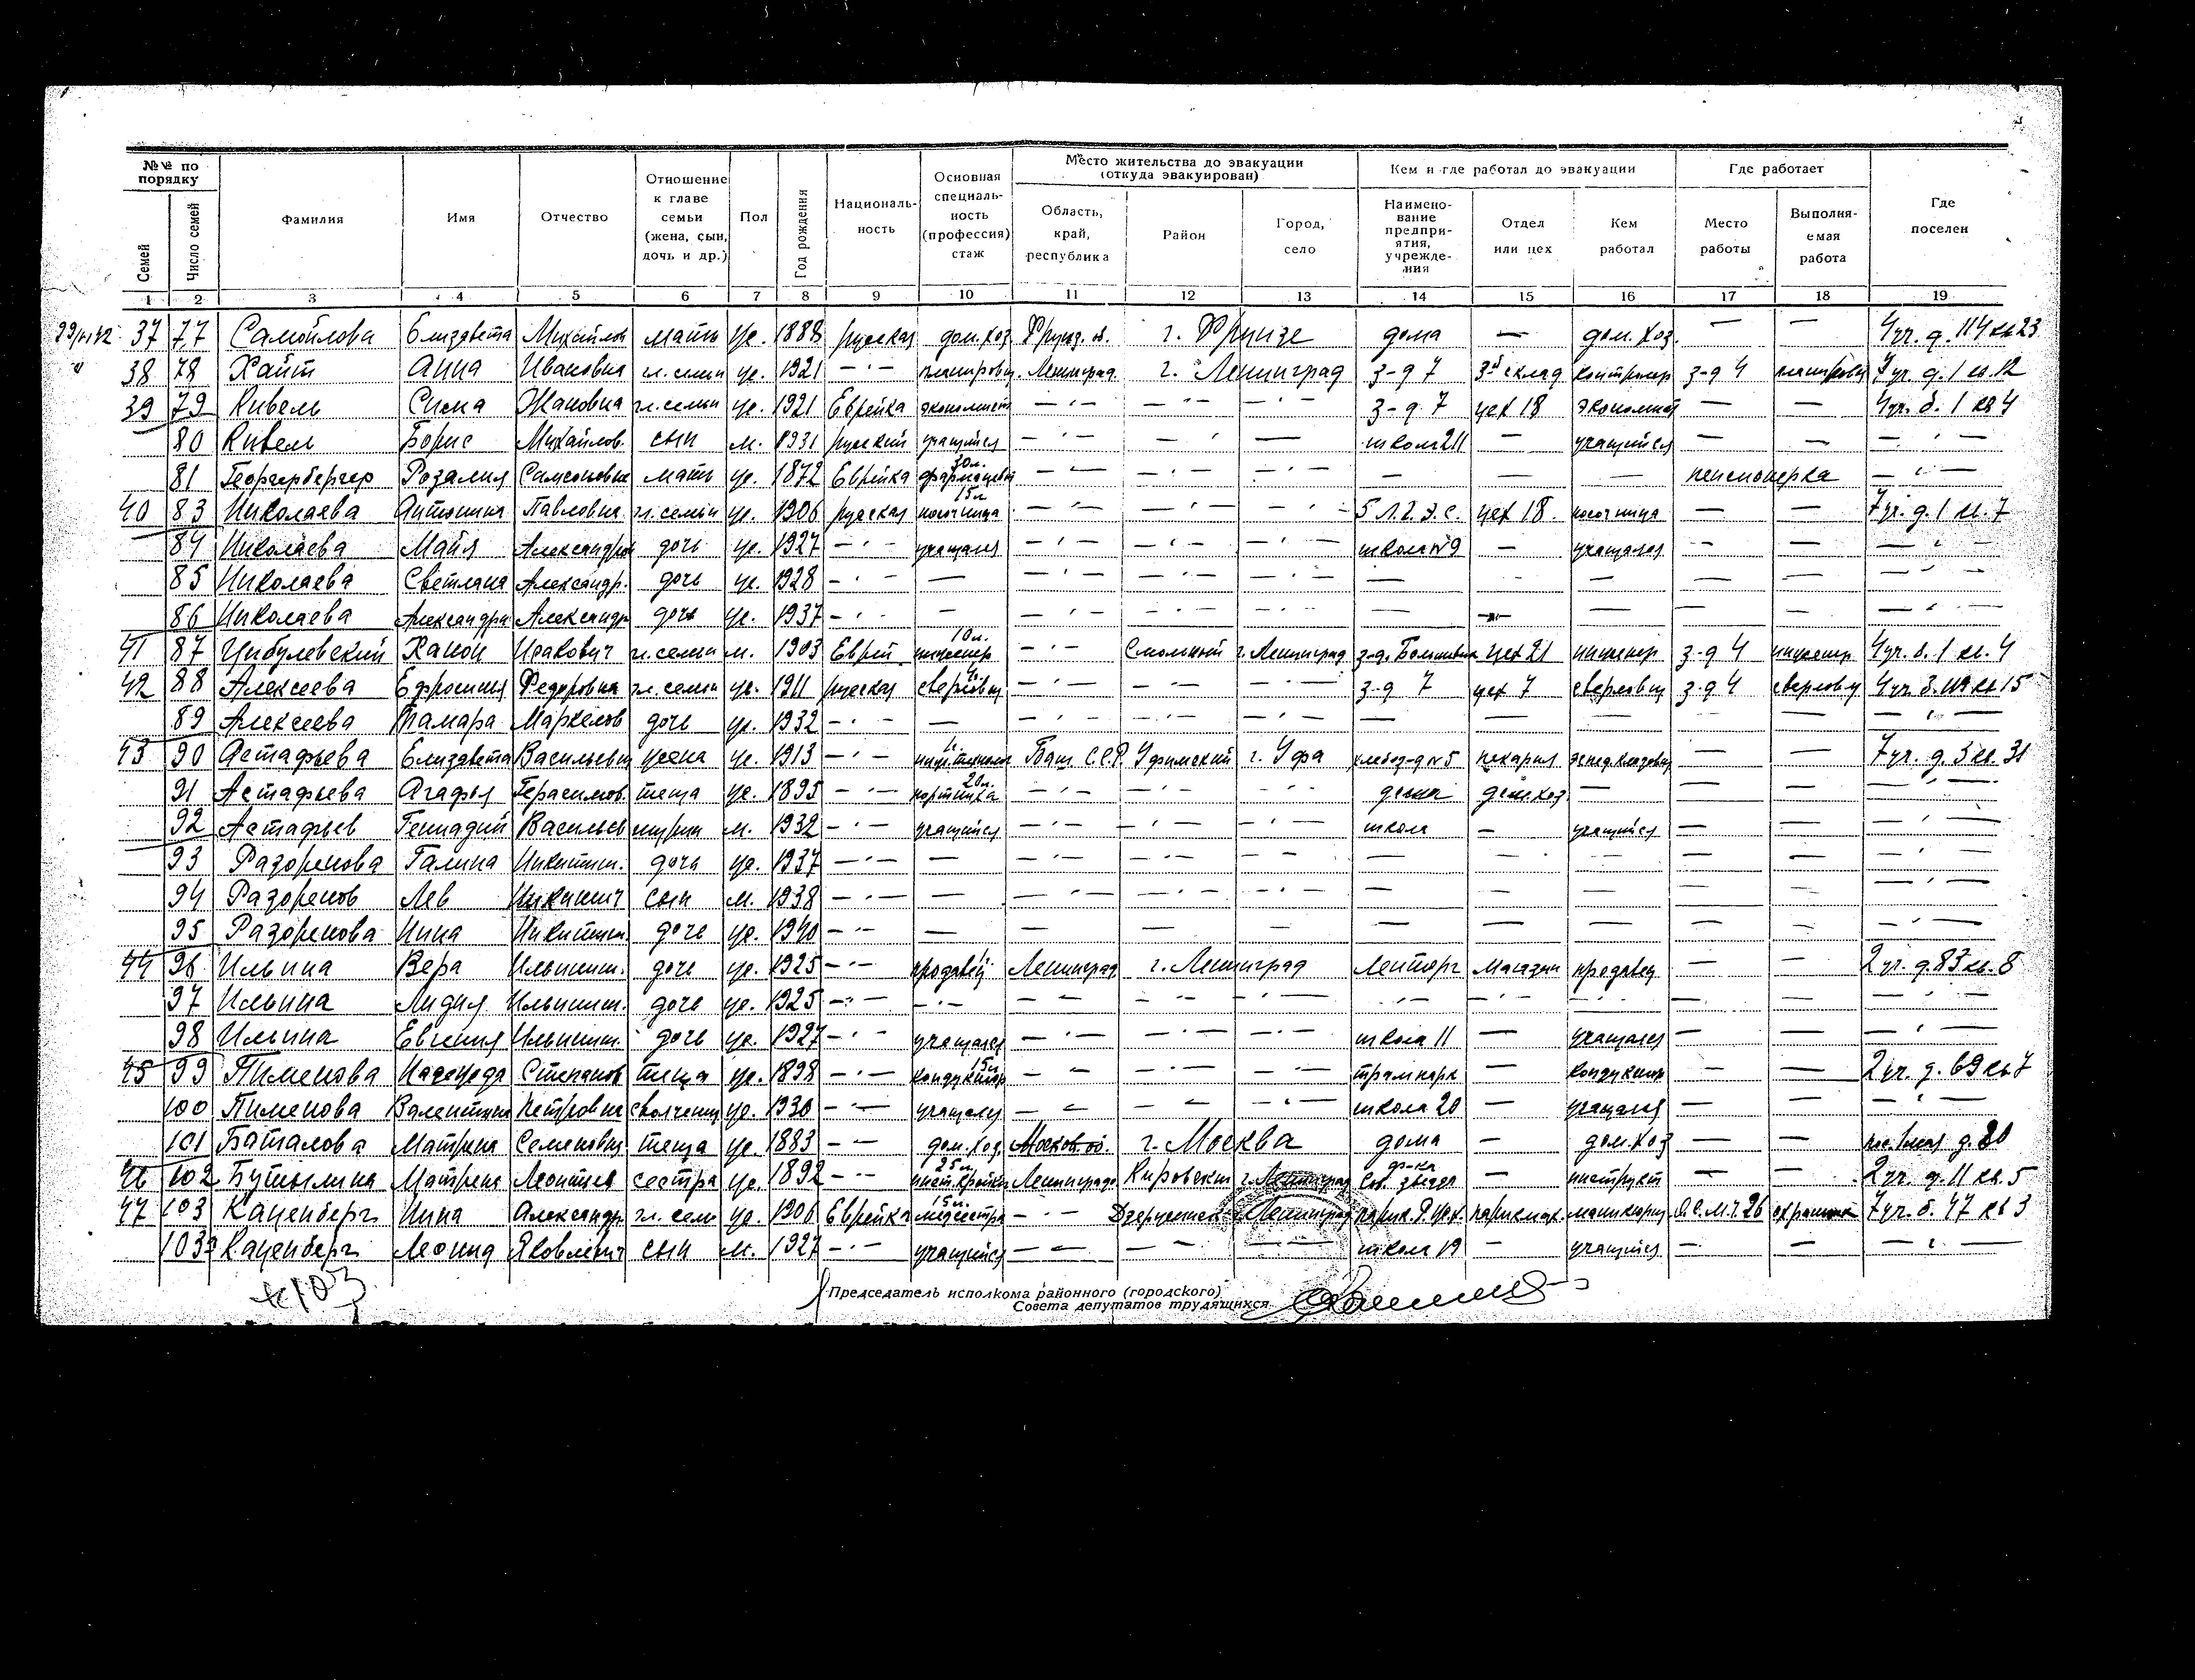 №№ по порядку
Семей
Число семей
Фамилия
Имя
Отчество
Отношение к главе семьи (жена, сын, дочь и др.)
Пол
Год рождения
Националь-ность
Основная специаль-ность (профессия) стаж
Место жительства до эвакуации (откуда эвакуирован)
Область, край, республика
Район
Город, село
Кем и где работал до эвакуации
Наимено-вание предпри-ятия, учрежде-ния
Отдел или цех
Кем работал
Где работает
Место работы
Выполня-емая работа
Где поселен
1 2 3 4 5 6 7 8 9 10 11 12 13 14 15 16 17 18 19
37 77 Самойлова Елизавета Михайлов мать ж. 1888 русская дом.хоз. Фрунз. об. г. Фрунзе дома — дом.хоз. — — 4 уч. д. 114 кв 23
38 78 Хайт Анна Ивановна гл. семьи ж. 1921 — " — Ленинград. г. Ленинград з-д 7 склад контролер з-д 4 уч. д. 1 кв. 12
39 79 Кивель Сима Жаковна гл. семьи ж. 1921 Еврейка экономист — " — з-д 7 цех 18 экономист — — 4 уч. д. 1 кв 4
80 Кивель Борис Михайлов. сын м. 1931 русский учащийся — " — — " — школа 211 — учащийся — — — " —
81 Розалия Самсоновна мать ж. 1872 Еврейка 30 л. фармацевт — " — — " — — " — — — — пенсионерка — " —
40 83 Николаева Антонина Павловна гл. семьи ж. 1906 русская 15 л — " — — " — — " — 5 Л.Г.Э.С. цех 18 — — 7 уч. д. 1 кв. 7
84 Николаева Майя Александров дочь ж. 1927 — " — учащаяся — " — — " — — " — школа №9 — учащаяся — — — " —
85 Николаева Светлана Александр. дочь ж. 1928 — " — — — " — — " — — " — — — — — — — " —
86 Николаева Александра Александр дочь ж. 1937 — " — — — " — — " — — " — — — — — — — " —
41 87 Цибулевский Ханон Исакович гл. семьи м. 1903 Еврей 10 л. инженер — " — Смольный г. Ленинград з-д. Большевик цех 21 инженер з-д 4 инженер 4 уч. д. 1 кв. 4
42 88 Алексеева Ефросиния Федоровна гл. семьи ж. 1911 русская сверловщ — " — — " — — " — з-д 7 цех 7 сверловщ з-д 4 сверловщ 4 уч. кв 15
89 Алексеева Тамара Маркелов дочь ж. 1932 — " — — — " — — " — — " — — — — — — — " —
43 90 Астафьева Елизавета Васильевн жена ж. 1913 — " — Баш. С.С.Р. Уфимский г. Уфа хлебоз-д №5 пекарня — — 7 уч. д. 3 кв. 31
91 Астафьева Агафья Герасимов. теща ж. 1895 — " — 20 л. портниха — " — — " — — " — дома дом.хоз. — — — — " —
92 Астафьев Геннадий Васильев шурин м. 1932 — " — учащийся — " — — " — — " — школа — учащийся — — — " —
93 Разоренова Галина Никитич. дочь ж. 1937 — " — — — " — — " — — " — — — — — — — " —
94 Разоренов Лев Никитич сын м. 1938 — " — — — " — — " — — " — — — — — — — " —
95 Разоренова Нина Никитич. дочь ж. 1940 — " — — — — — — — — — — — " —
44 96 Ильина Вера Ильинич. дочь ж. 1925 — " — продавец Ленинград г. Ленинград Ленторг магазин продавец — — 2 уч. д. 83 кв. 8
97 Ильина Лидия Ильинич. дочь ж. 1925 — " — — " — — " — — " — — " — — " — — " — — " — — — — " —
98 Ильина Евгения Ильинич. дочь ж. 1927 — " — учащаяся — " — — " — — " — школа 11 — учащаяся — — — " —
45 99 Пименова Надежда Степанов теща ж. 1898 — " — 15 л. кондуктор — " — — " — — " — трампарк — кондуктор — — 2 уч. д. 69 кв 7
100 Пименова Валентина Петровна свояченица ж. 1930 — " — учащаяся — " — — " — — " — школа 20 — учащаяся — — — " —
101 Баталова Матрена Семеновн. теща ж. 1883 — " — дом.хоз. Москов. об. г. Москва дома — дом.хоз — — д. 20
46 102 Бутылина Матрена Леонтьев сестра ж. 1892 — " — 25 л. Ленинград Кировский г. Ленинград ф-ка Сов. звезда — инструкт — — 2 уч. д. 11 кв. 5
47 103 Каценберг Нина Александр гл. семь ж. 1906 Еврейка 15 л. медсестра — " — Дзержинск г. Ленинград парикмах. маникюрш О.С.М.Ч. 26 7 уч. д. 47 кв 3
103а Каценберг Леонид Яковлевич сын м. 1927 — " — учащийся — " — — " — — " — школа 19 — учащийся — — — " —
к103
Председатель исполкома районного (городского)
Совета депутатов трудящихся